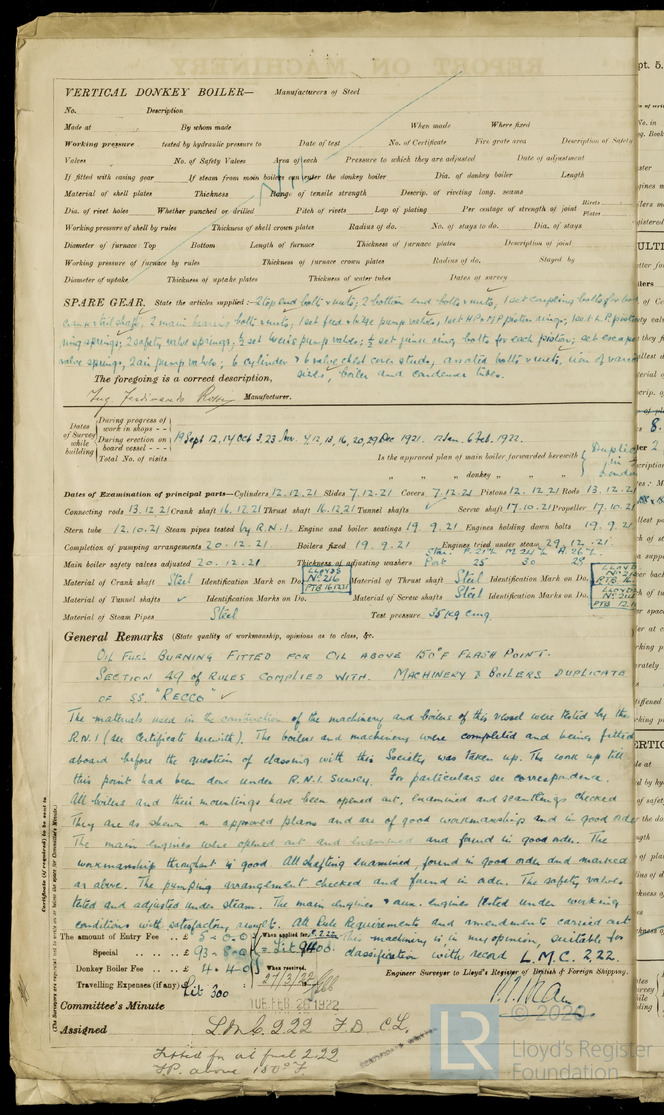 VERTICAL DONKEY BOILER— Manufacturers of Steel
No. Description
Made at By whom made When made Where fixed
Working pressure tested by hydraulic pressure to Date of test No. of Certificate Fire grate area Description of Safety
Valves No. of Safety Valves Area of each Pressure to which they are adjusted Date of adjustment
If fitted with easing gear If steam from main boilers can enter the donkey boiler Dia. of donkey boiler Length
Material of shell plates Thickness Range of tensile strength Descrip. of riveting long. seams
Dia. of rivet holes Whether punched or drilled Pitch of rivets Lap of plating Per centage of strength of joint Rivets Plates
Working pressure of shell by rules Thickness of shell crown plates Radius of do. No. of stays to do. Dia. of stays
Diameter of furnace Top Bottom Length of furnace Thickness of furnace plates Description of joint
Working pressure of furnace by rules Thickness of furnace crown plates Radius of do. Stayed by
Diameter of uptake Thickness of uptake plates Thickness of water tubes Dates of survey
SPARE GEAR. State the articles supplied:— 2 top end bolts & nuts; 2 bottom end bolts & nuts, 1 set coupling bolts for
crank & tail shaft, 2 main bearing bolts & nuts, 1 set feed & bilge pump valves, 1 set H.P & M.P piston rings, 1 set L.P. piston
ring springs; 2 safety valve springs; ½ set Weirs pump valves; ½ set junk ring bolts for each piston; set escape
valve springs, 2 air pump valves; 6 cylinder & 6 valve chest cover studs, assorted bolts & nuts, iron of various
sizes, boiler and condenser tubes.
The foregoing is a correct description,
Ing. Ferdinando Manufacturer.
Dates of Survey while building
During progress of work in shops - -
During erection on board vessel - - -
Total No. of visits
19 Sept 12, 14 Oct 3, 23 Nov 4, 12, 13, 16, 20, 29 Dec 1921. 12 Jan. 6 Feb. 1922.
Is the approved plan of main boiler forwarded herewith Duplicate in London
" " " donkey " " "
Dates of Examination of principal parts—Cylinders 12.12.21 Slides 7.12.21 Covers 7.12.21 Pistons 12.12.21 Rods 13.12.21
Connecting rods 13.12.21 Crank shaft 16.12.21 Thrust shaft 16.12.21 Tunnel shafts Screw shaft 17.10.21 Propeller 17.10.21
Stern tube 12.10.21 Steam pipes tested by R.N.I. Engine and boiler seatings 19.9.21 Engines holding down bolts 19.9.21
Completion of pumping arrangements 20.12.21 Boilers fixed 19.9.21 Engines tried under steam 29.12.21
Main boiler safety valves adjusted 20.12.21 Thickness of adjusting washers Star. F. 21 M 24 A. 26 Port 25 30 28
Material of Crank shaft Steel Identification Mark on Do. LLOYDS No 216 PTB 16.12.21 Material of Thrust shaft Steel Identification Mark on Do.
Material of Tunnel shafts Identification Marks on Do. Material of Screw shafts Steel Identification Marks on Do.
Material of Steam Pipes Steel Test pressure 35 kg cmq.
General Remarks (State quality of workmanship, opinions as to class, &c.
OIL FUEL BURNING FITTED FOR OIL ABOVE 150°F FLASH POINT.
SECTION 49 OF RULES COMPLIED WITH. MACHINERY & BOILERS DUPLICATE
OF SS. "RECCO"
The materials used in the construction of the machinery and boilers of this vessel were tested by the
R.N.I (see Certificate herewith). The boilers and machinery were completed and being fitted
aboard before the question of classing with this Society was taken up. The work up till
this point had been done under R.N.I. Survey. For particulars see correspondence.
All boilers and their mountings have been opened out, examined and scantlings checked
They are as shewn on approved plans and are of good workmanship and in good order
The main engines were opened out and examined and found in good order. The
workmanship throughout is good All shafting examined, found in good order and marked
as above. The pumping arrangement checked and found in order. The safety valves
tested and adjusted under steam. The main engines & aux. engines tested under working
conditions with satisfactory result. All Rule Requirements and amendments carried out
This machinery is, in my opinion, suitable for
classification with record L.M.C. 2.22.
The amount of Entry Fee .. £ 5-0-0 When applied for,
Special .. £ 93-8-0 = Lit 9400
Donkey Boiler Fee .. £ 4-4-0 When received,
Travelling Expenses (if any) £ Lit 300 27/3/22
Engineer Surveyor to Lloyd's Register of British & Foreign Shipping.
Committee's Minute TUE. FEB. 28 1922
Assigned L.M.C. 2.22 F.D. C.L.
Fitted for oil fuel 2.22
F.P. above 150°F.
Certificate (if required) to be sent to
(The Surveyors are requested not to write on or below the space for Committee's Minute.)
© 2020
LR
Lloyd's Register
Foundation